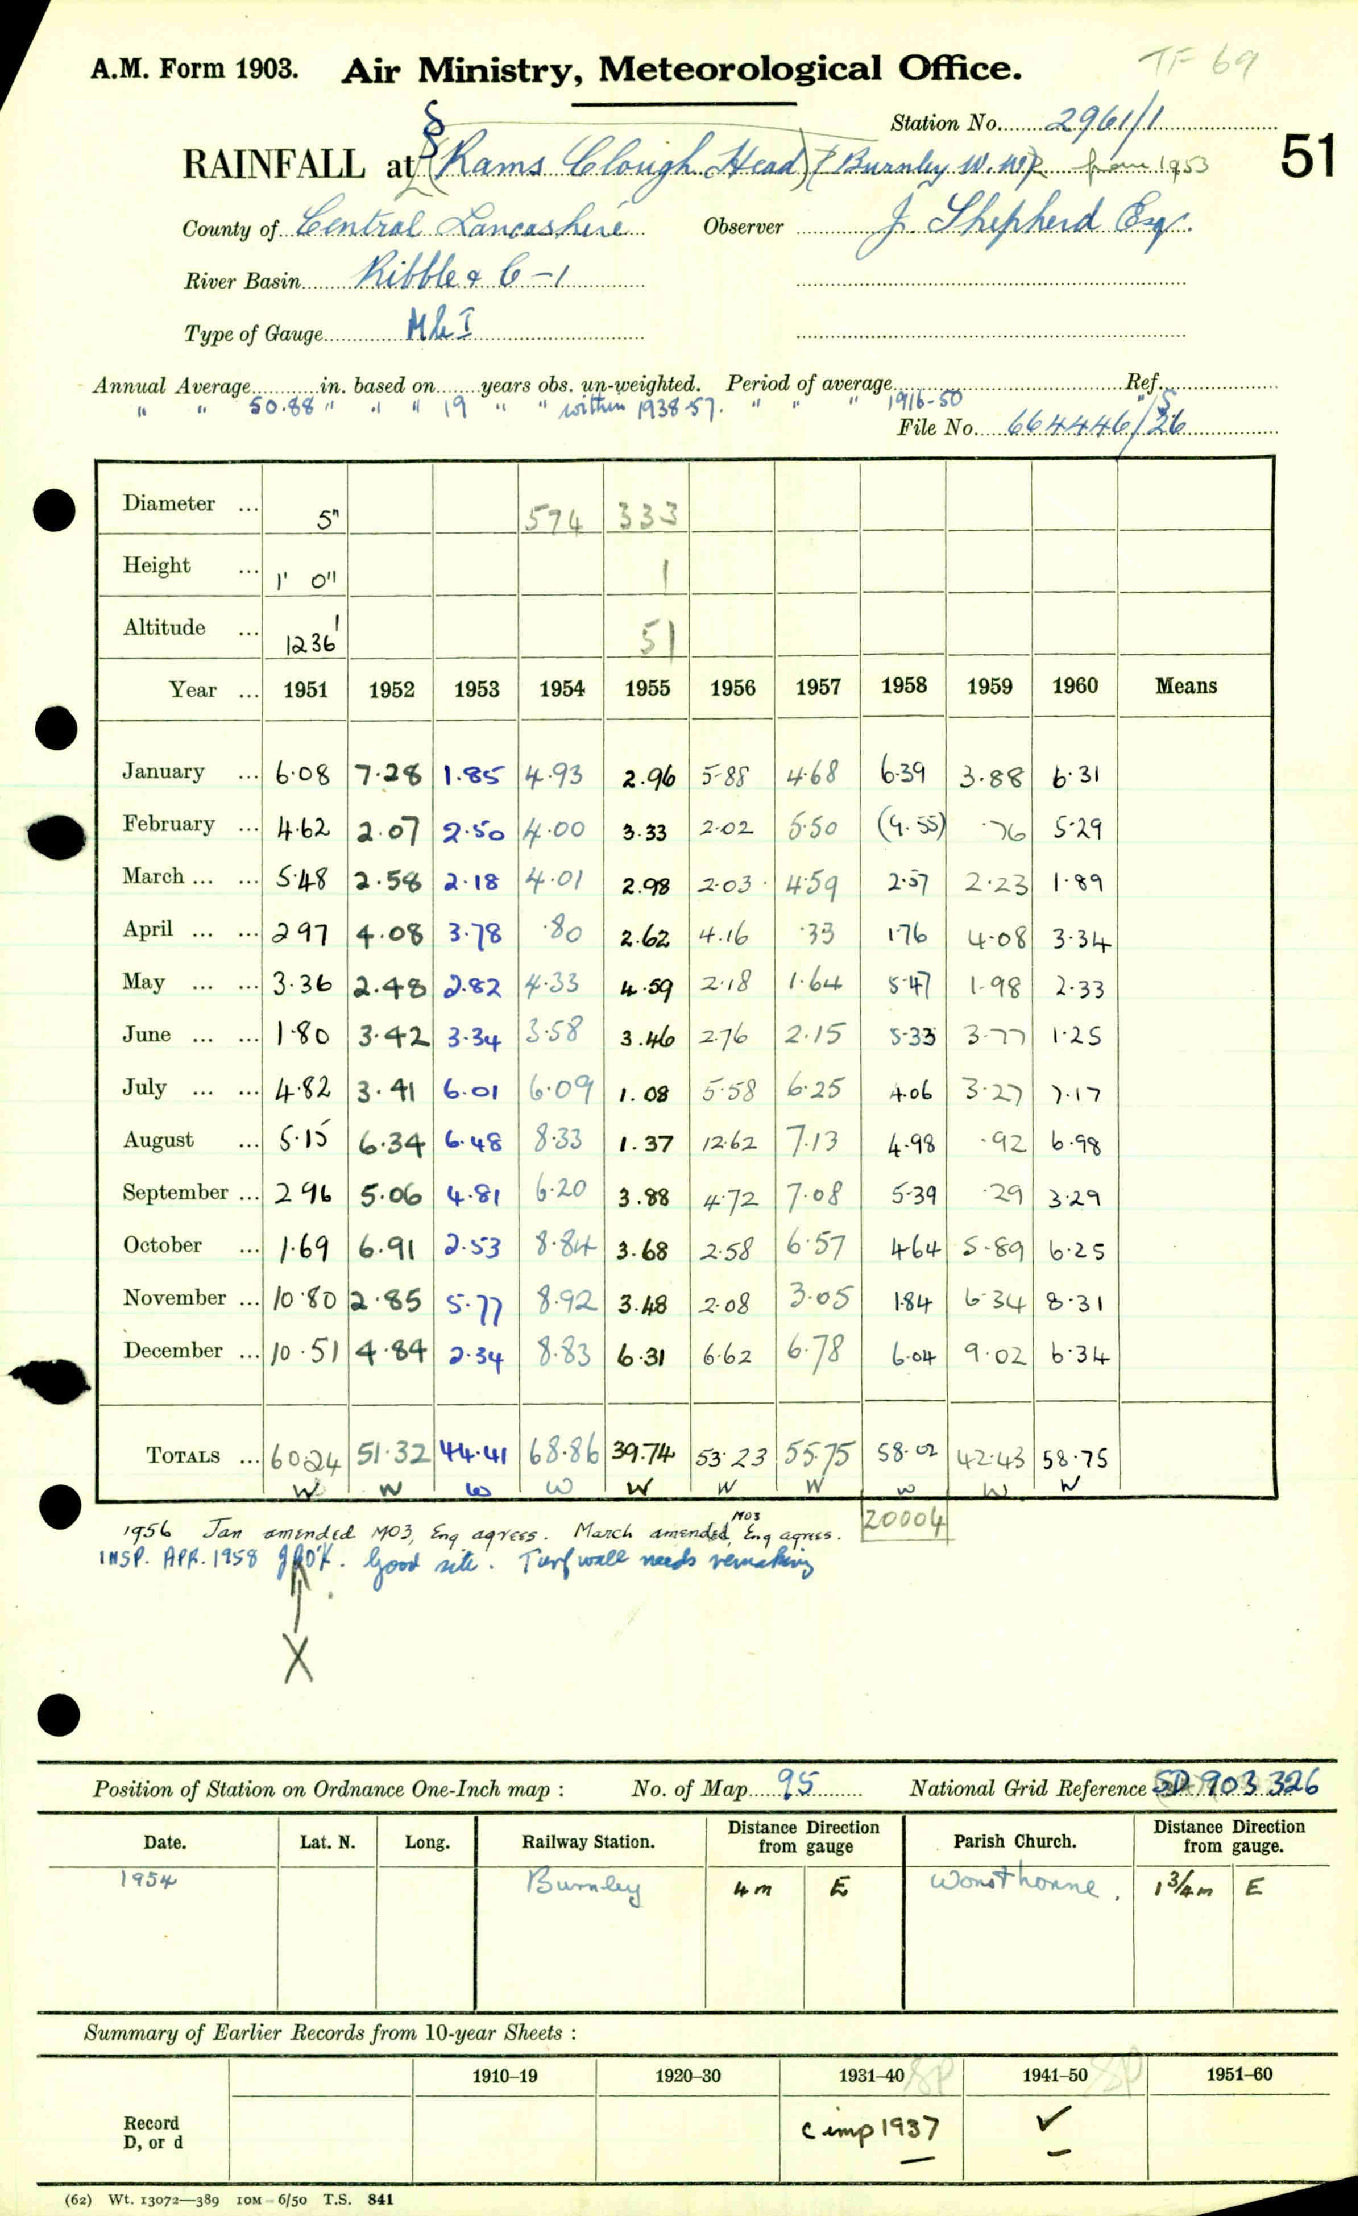 TF 69
A.M. Form 1903. Air Ministry, Meteorological Office.
Station No. 2961/1
51
RAINFALL at § (Rams Clough Head) (Burnley W.W.) from 1953
County of Central Lancashire Observer J. Shepherd Esq.
River Basin Ribble & C-1
Type of Gauge Mk I
Annual Average in. based on years obs. un-weighted. Period of average Ref.
" " 50.88 " " " 19 " " within 1938-57. " " " 1916-50 " S
File No. 664446/26
Diameter ... 5" 574 333
Height ... 1' 0" 1
Altitude ... 1236' 51
Year ... 1951 1952 1953 1954 1955 1956 1957 1958 1959 1960 Means
January ... 6.08 7.28 1.85 4.93 2.96 5.88 4.68 6.39 3.88 6.31
February ... 4.62 2.07 2.50 4.00 3.33 2.02 5.50 (4.55) .76 5.29
March ... ... 5.48 2.58 2.18 4.01 2.98 2.03 4.59 2.57 2.23 1.89
April ... ... 2.97 4.08 3.78 .80 2.62 4.16 .33 1.76 4.08 3.34
May ... ... 3.36 2.48 2.82 4.33 4.59 2.18 1.64 5.47 1.98 2.33
June ... ... 1.80 3.42 3.34 3.58 3.46 2.76 2.15 5.33 3.77 1.25
July ... ... 4.82 3.41 6.01 6.09 1.08 5.58 6.25 4.06 3.27 7.17
August ... 5.15 6.34 6.48 8.33 1.37 12.62 7.13 4.98 .92 6.98
September ... 2.96 5.06 4.81 6.20 3.88 4.72 7.08 5.39 .29 3.29
October ... 1.69 6.91 2.53 8.84 3.68 2.58 6.57 4.64 5.89 6.25
November ... 10.80 2.85 5.77 8.92 3.48 2.08 3.05 1.84 6.34 8.31
December ... 10.51 4.84 2.34 8.83 6.31 6.62 6.78 6.04 9.02 6.34
TOTALS ... 60.24 51.32 44.41 68.86 39.74 53.23 55.75 58.02 42.43 58.75
W W W W W W W W W W
20004
1956 Jan amended MO3, Eng agrees. March amended, MO3 Eng agrees.
INSP. APR. 1958 O'K. Good site. Turf wall needs remaking
X
Position of Station on Ordnance One-Inch map : No. of Map 95 National Grid Reference SD 903 326
Date. Lat. N. Long. Railway Station. Distance Direction from gauge Parish Church. Distance Direction from gauge.
1954 Burnley 4m E Worsthorne. 1 3/4m E
Summary of Earlier Records from 10-year Sheets :
1910–19 1920–30 1931–40 1941–50 1951–60
SP SP
Record D, or d c imp 1937 ✓
(62) Wt. 13072—389 10M - 6/50 T.S. 841